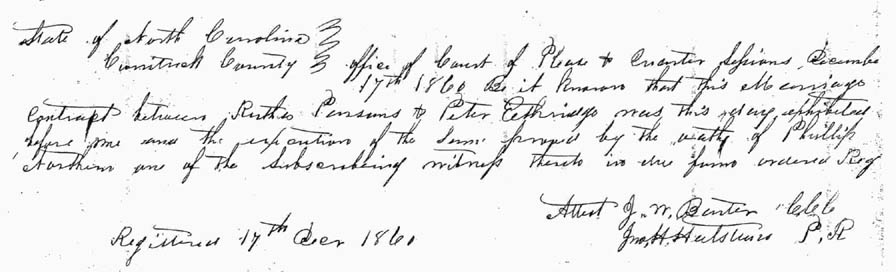 State of North Carolina
Currituck County office of Court of Pleas & Quarter Sessions December
17th 1860 Be it known that this Marriage
Contract between Ruthe Parsons & Peter Etheridge was this day exhibited
before me and the execution of the same proved by the oath of Phillip
Northern one of the Subscribing witness thereto in due form ordered Reg
Attest J. W. Baxter CCC
Registered 17th Decr 1860
Jno. H. P. R